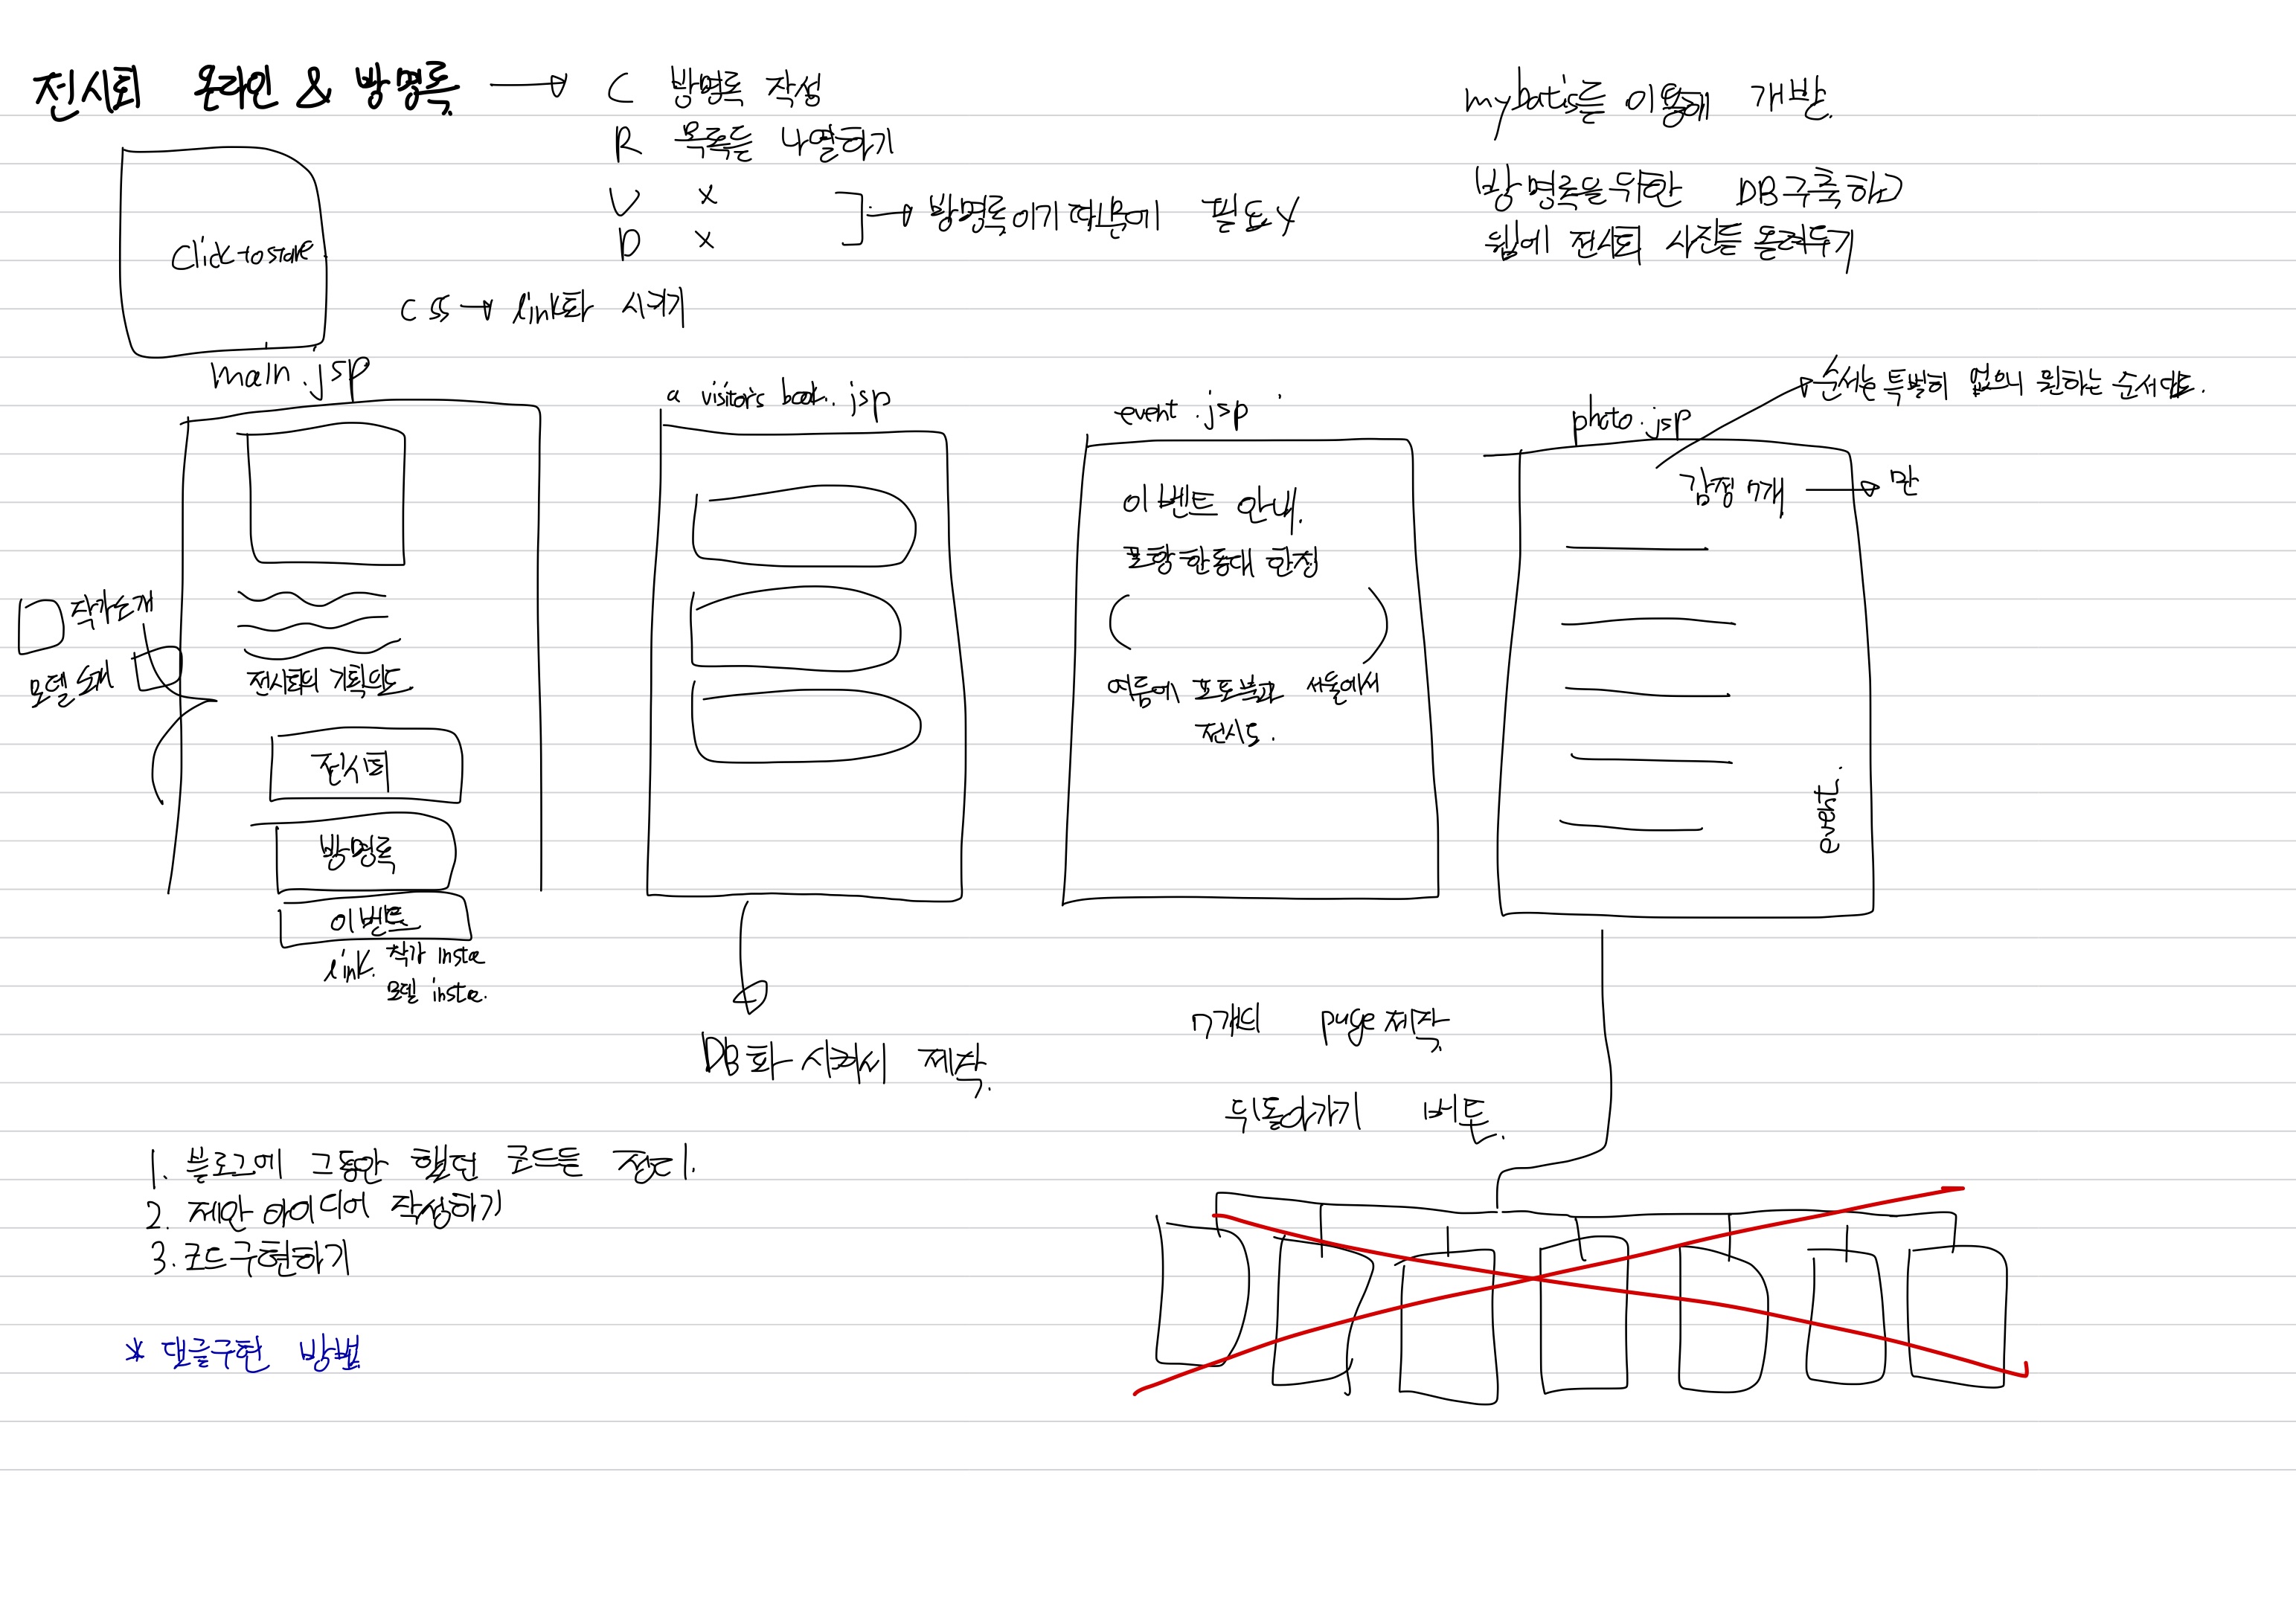 전시회 온라인 & 방명록
C 방명록 작성
R 목록들 나열하기
U x
D x
방명록이기 때문에 필요 X
mybatis를 이용해 개발.
방명록을 위한 DB구축하고
웹에 전시회 사진들 올려두기
Click to start
css → link화 시키기
main.jsp
작가소개
모델 소개
전시회의 기획의도
전시회
방명록
이벤트
link. 작가 insta
모델 insta.
a visitor's book.jsp
DB화 시켜서 제작.
event.jsp
이벤트 안내.
포항 한동대 한정
여름에 포토북과 서울에서
전시도.
photo.jsp
순서는 특별히 없으니 원하는 순서대로.
감정 7개 →
event.
7개의 page 제작
뒤돌아가기 버튼.
1. 블로그에 그동안 했던 코드들 정리.
2. 제안 아이디어 작성하기
3. 코드 구현하기
* 댓글구현 방법